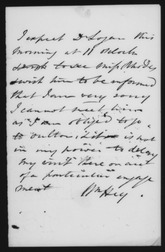 I expect Dr Logan this
morning at 11 oClock
to see Miss
wish him to be informed
that I am very sorry
I cannot meet him
as I am obliged to go
to it is
in my power to delay
my visit there on acct
of a particular engage
ment Wm Hey